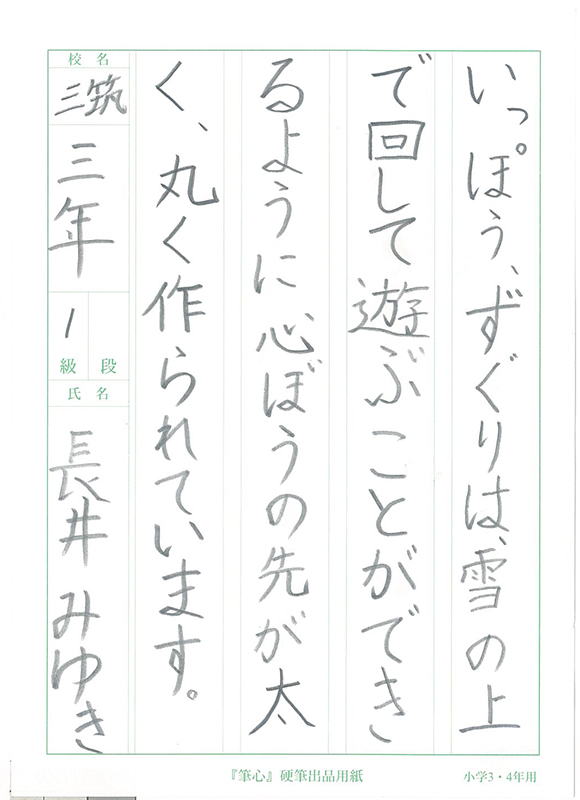 いっぽう、ずぐりは、雪の上
で回して遊ぶことができ
るように心ぼうの先が太
く、丸く作られています。
校名
三筑
三年
1
級 段
氏名
長井みゆき
『筆心』硬筆出品用紙
小学3・4年用